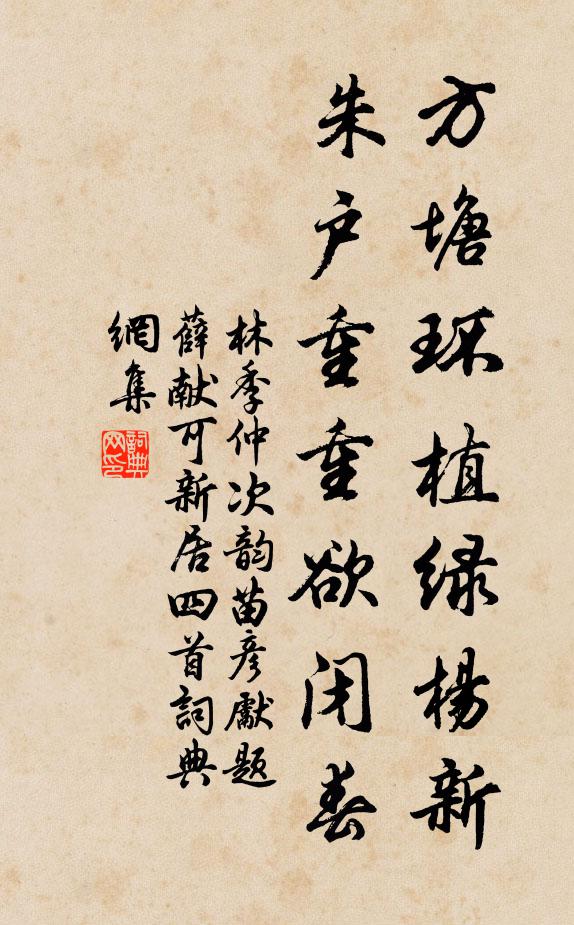 方塘环植绿杨新
朱户重重欲闭春
林季仲次韵苗彦獻題
薛献可新居四首詞典
網集
詞典
网印